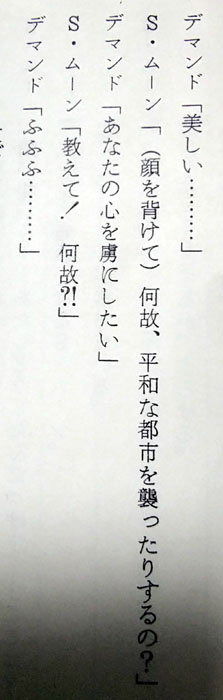 デマンド「美しい…………」
S・ムーン「（顔を背けて）何故、平和な都市を襲ったりするの？」
デマンド「あなたの心を虜にしたい」
S・ムーン「教えて！　何故?!」
デマンド「ふふふ…………」